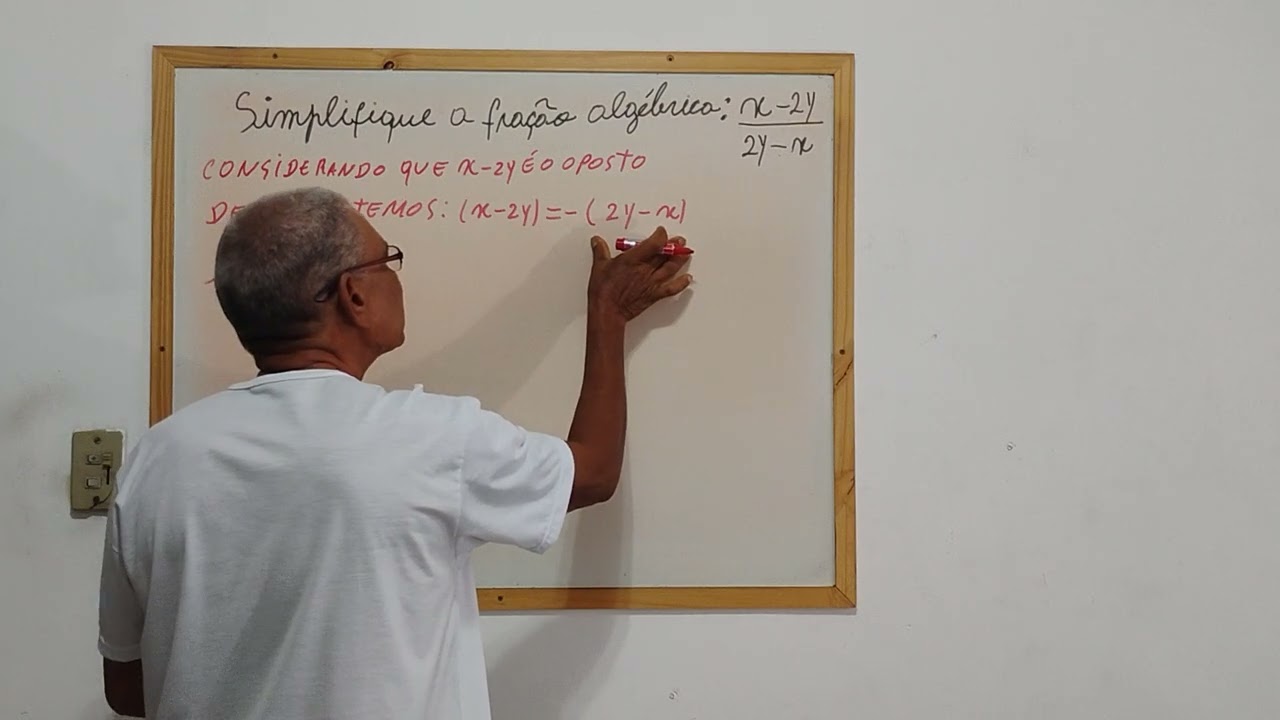 Simplifique a fração algébrica: x-2y
2y-x
CONSIDERANDO QUE x-2y É O OPOSTO
DE TEMOS: (x-2y)=-(2y-x)